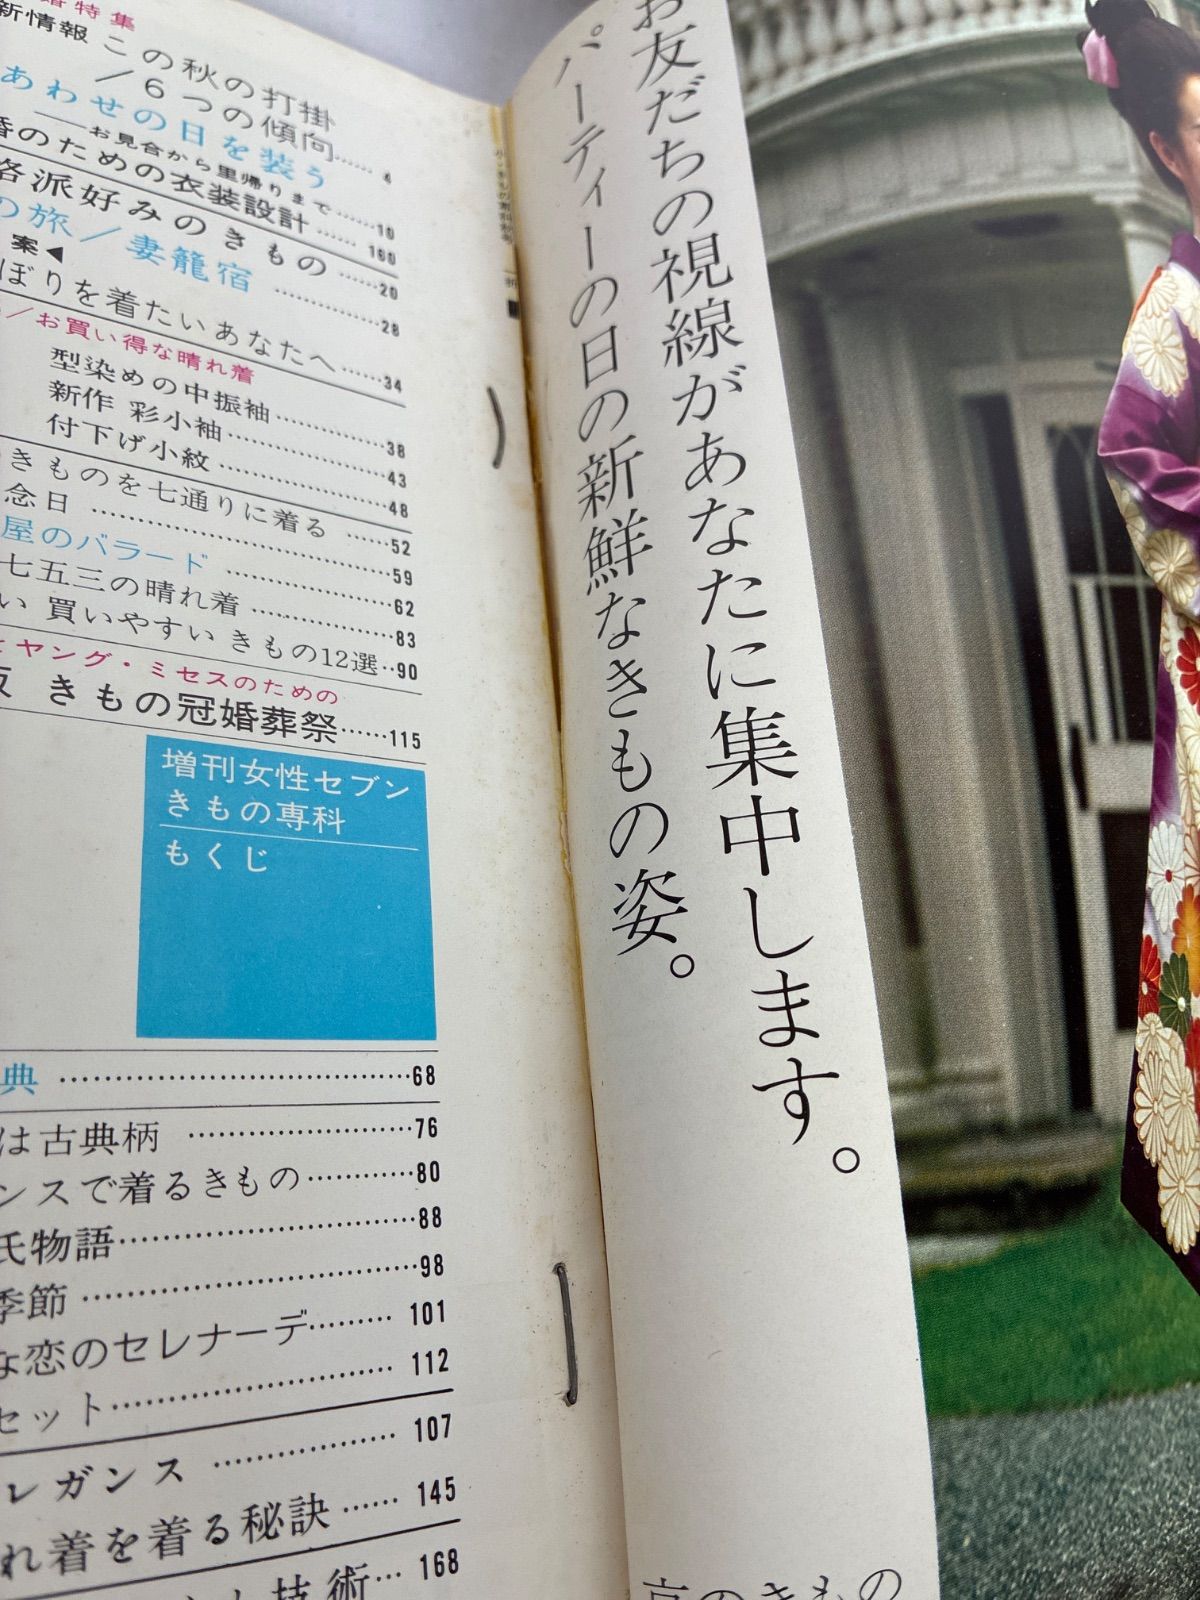 特集
新情報 この秋の打掛
／６つの傾向……4
あわせの日を装う
──お見合から里帰りまで……10
のための衣装設計……160
派好みのきもの……20
の旅／妻籠宿……28
案◀
ぼりを着たいあなたへ……34
／お買い得な晴れ着
型染めの中振袖……38
新作 彩小袖……43
付下げ小紋……48
きものを七通りに着る……52
念日……59
屋のバラード……62
七五三の晴れ着……83
い 買いやすい きもの12選‥90
ヤング・ミセスのための
きもの冠婚葬祭……115
増刊女性セブン
きもの専科
もくじ
典……68
は古典柄……76
ンスで着るきもの……80
氏物語……88
季節……98
な恋のセレナーデ……101
セット……112
レガンス……107
れ着を着る秘訣……145
技術…168
お友だちの視線があなたに集中します。
パーティーの日の新鮮なきもの姿。
京のきもの